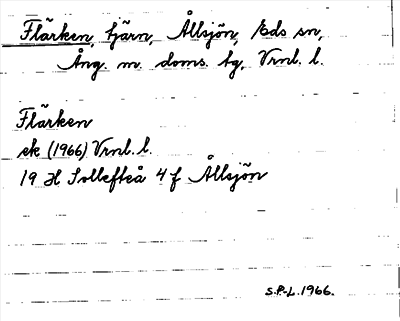 Flärken, tjärn, Ållsjön, Eds sn,
Ång. m. doms. tg, Vrnl. l.
Flärken
ek (1966) Vrnl. l.
19 H Sollefteå 4 f Ållsjön
S.P.-L. 1966.